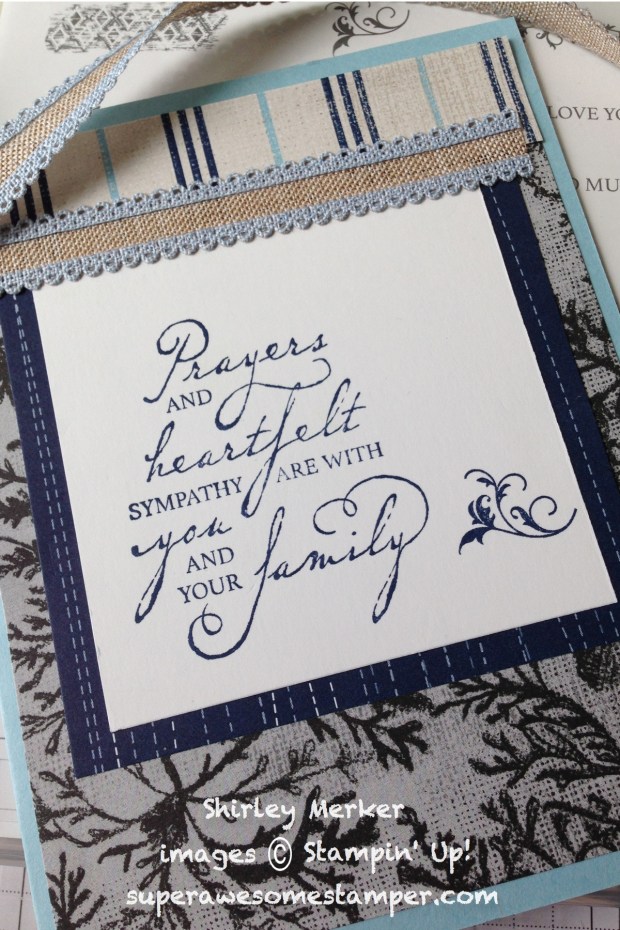 LOVE YO
O MU
Prayers
AND
heartfelt
SYMPATHY ARE WITH
you
AND
YOUR family
Shirley Merker
images © Stampin' Up!
superawesomestamper.com